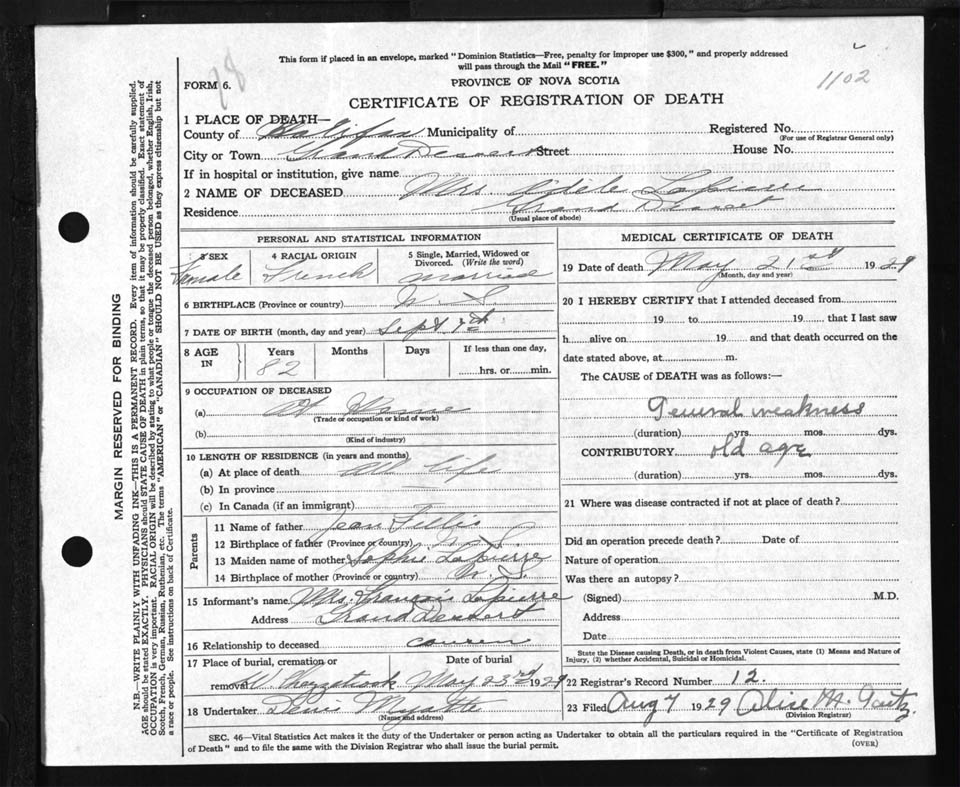 This form if placed in an envelope, marked "Dominion Statistics—Free, penalty for improper use $300," and properly addressed
will pass through the Mail "FREE."
1102
98
FORM 6.
PROVINCE OF NOVA SCOTIA
CERTIFICATE OF REGISTRATION OF DEATH
1 PLACE OF DEATH—
County of Halifax Municipality of Registered No.
(For use of Registrar General only)
City or Town Grand Desert Street House No.
If in hospital or institution, give name
2 NAME OF DECEASED Mrs Adele Lapierre
Residence Grand Desert
(Usual place of abode)
PERSONAL AND STATISTICAL INFORMATION
3 SEX 4 RACIAL ORIGIN 5 Single, Married, Widowed or Divorced. (Write the word)
Female French Married
6 BIRTHPLACE (Province or country) N. S.
7 DATE OF BIRTH (month, day and year) Sept
8 AGE IN Years Months Days If less than one day,
82 hrs. or min.
9 OCCUPATION OF DECEASED
(a) At Home
(Trade or occupation or kind of work)
(b)
(Kind of industry)
10 LENGTH OF RESIDENCE (in years and months)
(a) At place of death all life
(b) In province
(c) In Canada (if an immigrant)
Parents
11 Name of father Jean
12 Birthplace of father (Province or country) N. S.
13 Maiden name of mother Sophie LaPierre
14 Birthplace of mother (Province or country) N. S.
15 Informant's name Mrs. Francois Lapierre
Address Grand Desert
16 Relationship to deceased
17 Place of burial, cremation or removal Date of burial
W. Chezzetcook May 23rd 1929
18 Undertaker Myatte
(Name and address)
MEDICAL CERTIFICATE OF DEATH
19 Date of death May 21st 1929
(Month, day and year)
20 I HEREBY CERTIFY that I attended deceased from
19 to 19 that I last saw
h alive on 19 and that death occurred on the
date stated above, at m.
The CAUSE of DEATH was as follows:—
General weakness
(duration) yrs. mos. dys.
CONTRIBUTORY old age
(duration) yrs. mos. dys.
21 Where was disease contracted if not at place of death?
Did an operation precede death? Date of
Nature of operation
Was there an autopsy?
(Signed) M.D.
Address
Date
State the Disease causing Death, or in death from Violent Causes, state (1) Means and Nature of
Injury, (2) whether Accidental, Suicidal or Homicidal.
22 Registrar's Record Number 12.
23 Filed Aug 7 1929 Alice M.
(Division Registrar)
SEC. 46—Vital Statistics Act makes it the duty of the Undertaker or person acting as Undertaker to obtain all the particulars required in the "Certificate of Registration
of Death" and to file the same with the Division Registrar who shall issue the burial permit.
(OVER)
MARGIN RESERVED FOR BINDING
N.B.—WRITE PLAINLY WITH UNFADING INK—THIS IS A PERMANENT RECORD. Every item of information should be carefully supplied.
AGE should be stated EXACTLY. PHYSICIANS should STATE CAUSE OF DEATH in plain terms, so that it may be properly classified. Exact statement of
OCCUPATION is very important. RACIAL ORIGIN will be described by stating to what people or tongue the deceased person belonged, whether English, Irish,
Scotch, French, German, Russian, Ruthenian, etc. The terms "AMERICAN" or "CANADIAN" SHOULD NOT BE USED as they express citizenship but not
a race or people. See instructions on back of Certificate.